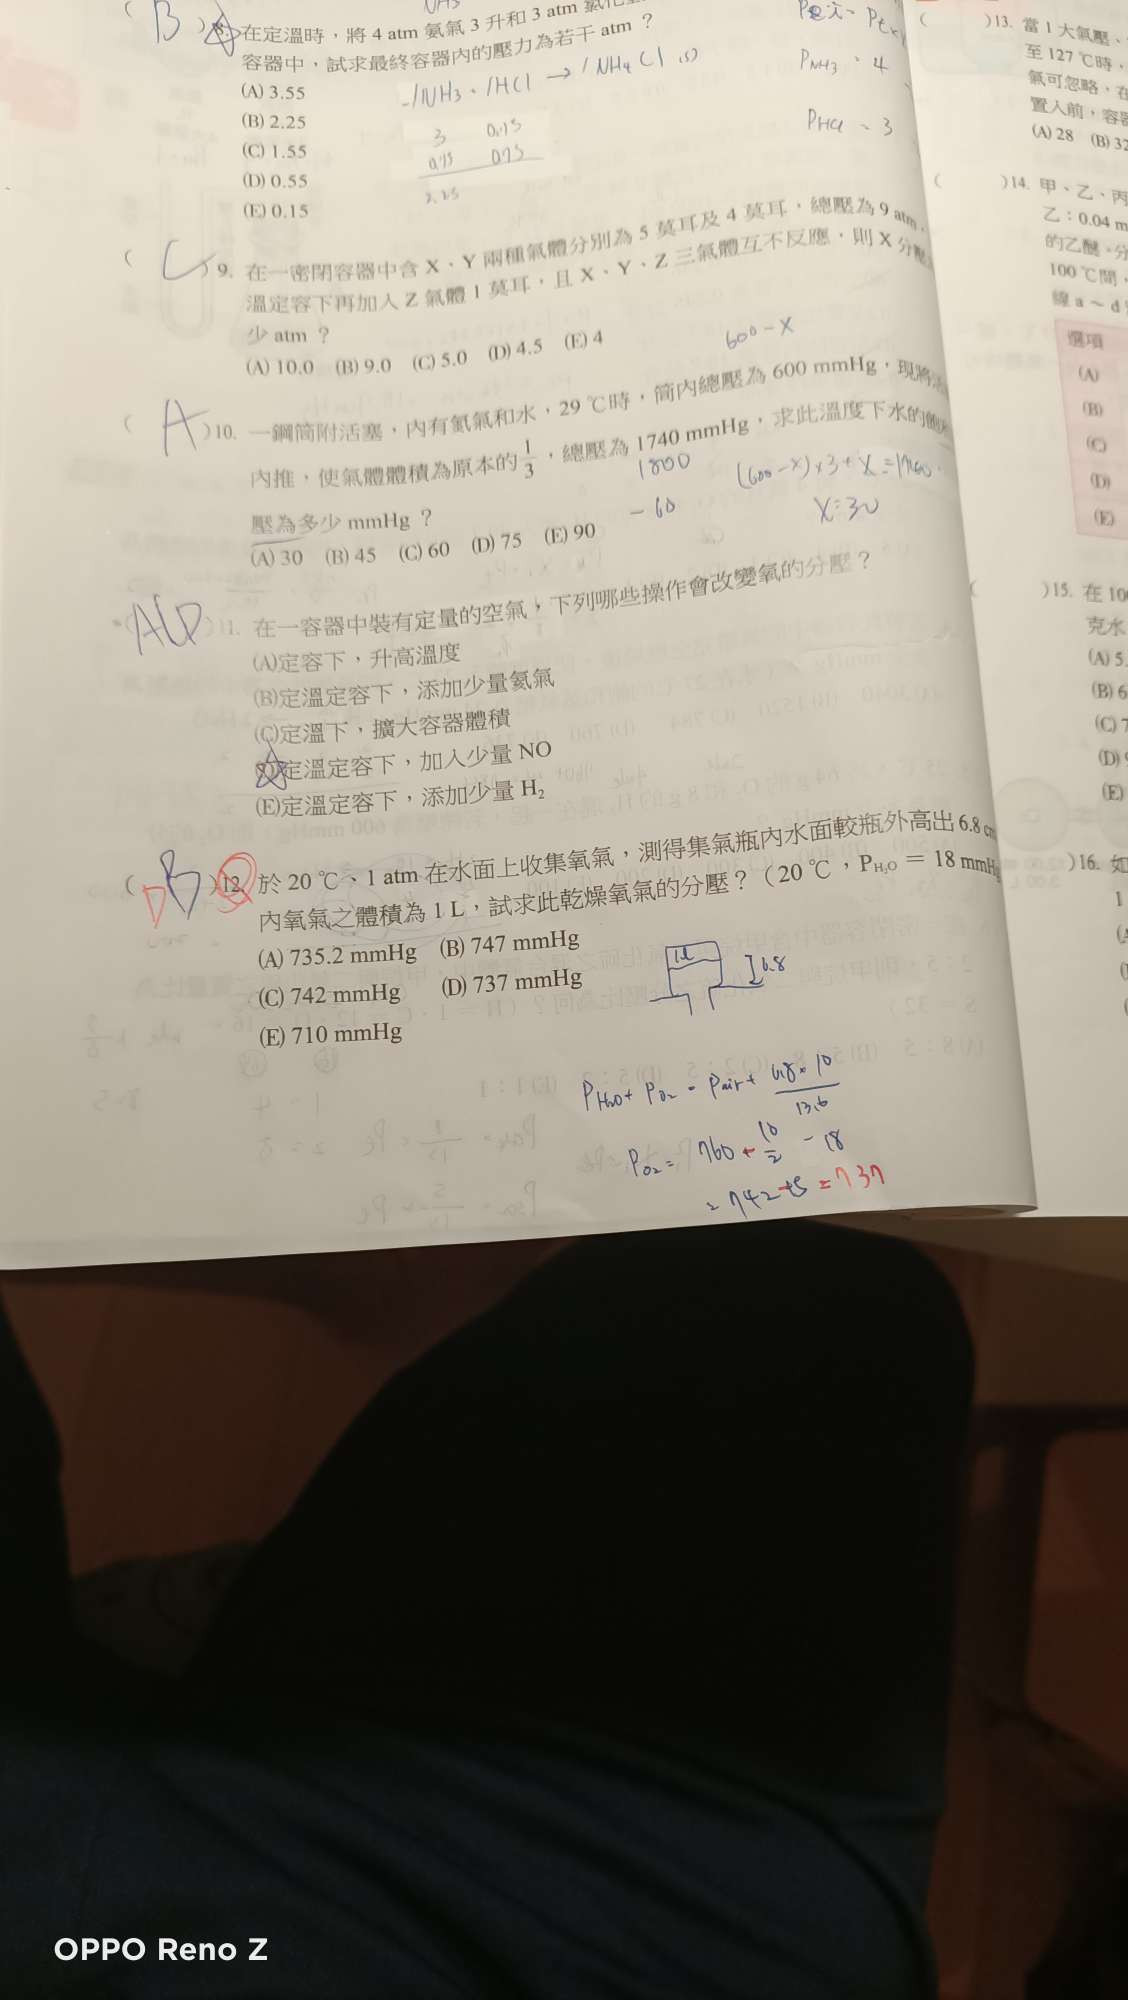 B
8. 在定溫時，將 4 atm 氨氣 3 升和 3 atm
容器中，試求最終容器內的壓力為若干 atm？
(A) 3.55
(B) 2.25
(C) 1.55
(D) 0.55
(E) 0.15
NH3
/NH3 + /HCl → /NH4Cl (s)
3 0.75
0.75 0.75
2.25
PNH3 = 4
PHCl = 3
( C )9. 在一密閉容器中含 X、Y 兩種氣體分別為 5 莫耳及 4 莫耳，總壓為 9 atm，
溫定容下再加入 Z 氣體 1 莫耳，且 X、Y、Z 三氣體互不反應，則 X 分壓
少 atm？
(A) 10.0 (B) 9.0 (C) 5.0 (D) 4.5 (E) 4
600-X
( A )10. 一鋼筒附活塞，內有氮氣和水，29 ℃時，筒內總壓為 600 mmHg，現將
內推，使氣體體積為原本的 1/3，總壓為 1740 mmHg，求此溫度下水的飽
1800
(600-X)×3+X=1740
壓為多少 mmHg？
-60
X=30
(A) 30 (B) 45 (C) 60 (D) 75 (E) 90
( ACD )11. 在一容器中裝有定量的空氣，下列哪些操作會改變氧的分壓？
(A)定容下，升高溫度
(B)定溫定容下，添加少量氦氣
(C)定溫下，擴大容器體積
(D)定溫定容下，加入少量 NO
(E)定溫定容下，添加少量 H2
( D B )12. 於 20 ℃、1 atm 在水面上收集氧氣，測得集氣瓶內水面較瓶外高出 6.8 cm
內氧氣之體積為 1 L，試求此乾燥氧氣的分壓？（20 ℃，PH2O = 18 mmHg
(A) 735.2 mmHg (B) 747 mmHg
(C) 742 mmHg (D) 737 mmHg
(E) 710 mmHg
1L
6.8
PH2O + PO2 = Pair + 6.8×10/13.6
PO2 = 760 + 10/2 - 18
= 742 +5 = 737
( )13. 當 1 大氣壓、
至 127 ℃時，
氣可忽略，在
置入前，容器
(A) 28 (B) 32
( )14. 甲、乙、丙
乙：0.04 m
的乙醚，分
100 ℃間，
線 a～d
選項
(A)
(B)
(C)
(D)
(E)
( )15. 在 100
克水
(A) 5.
(B) 6
(C) 7
(D)
(E)
)16. 如
1
OPPO Reno Z